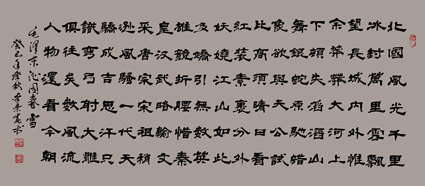 北國風光千里
冰封萬里雪飄
望長城內外惟
余莽莽大河上
下頓失滔滔山
舞銀蛇原馳蠟
象欲與天公試
比高須晴日看
紅裝素裹分外
妖嬈江山如此
多嬌引無數英
雄競折腰惜秦
皇漢武略輸文
采唐宗宋祖稍
遜風騷一代天
驕成吉思汗只
識彎弓射大雕
俱往矣數風流
人物還看今朝
毛澤東沁園春雪
癸巳年